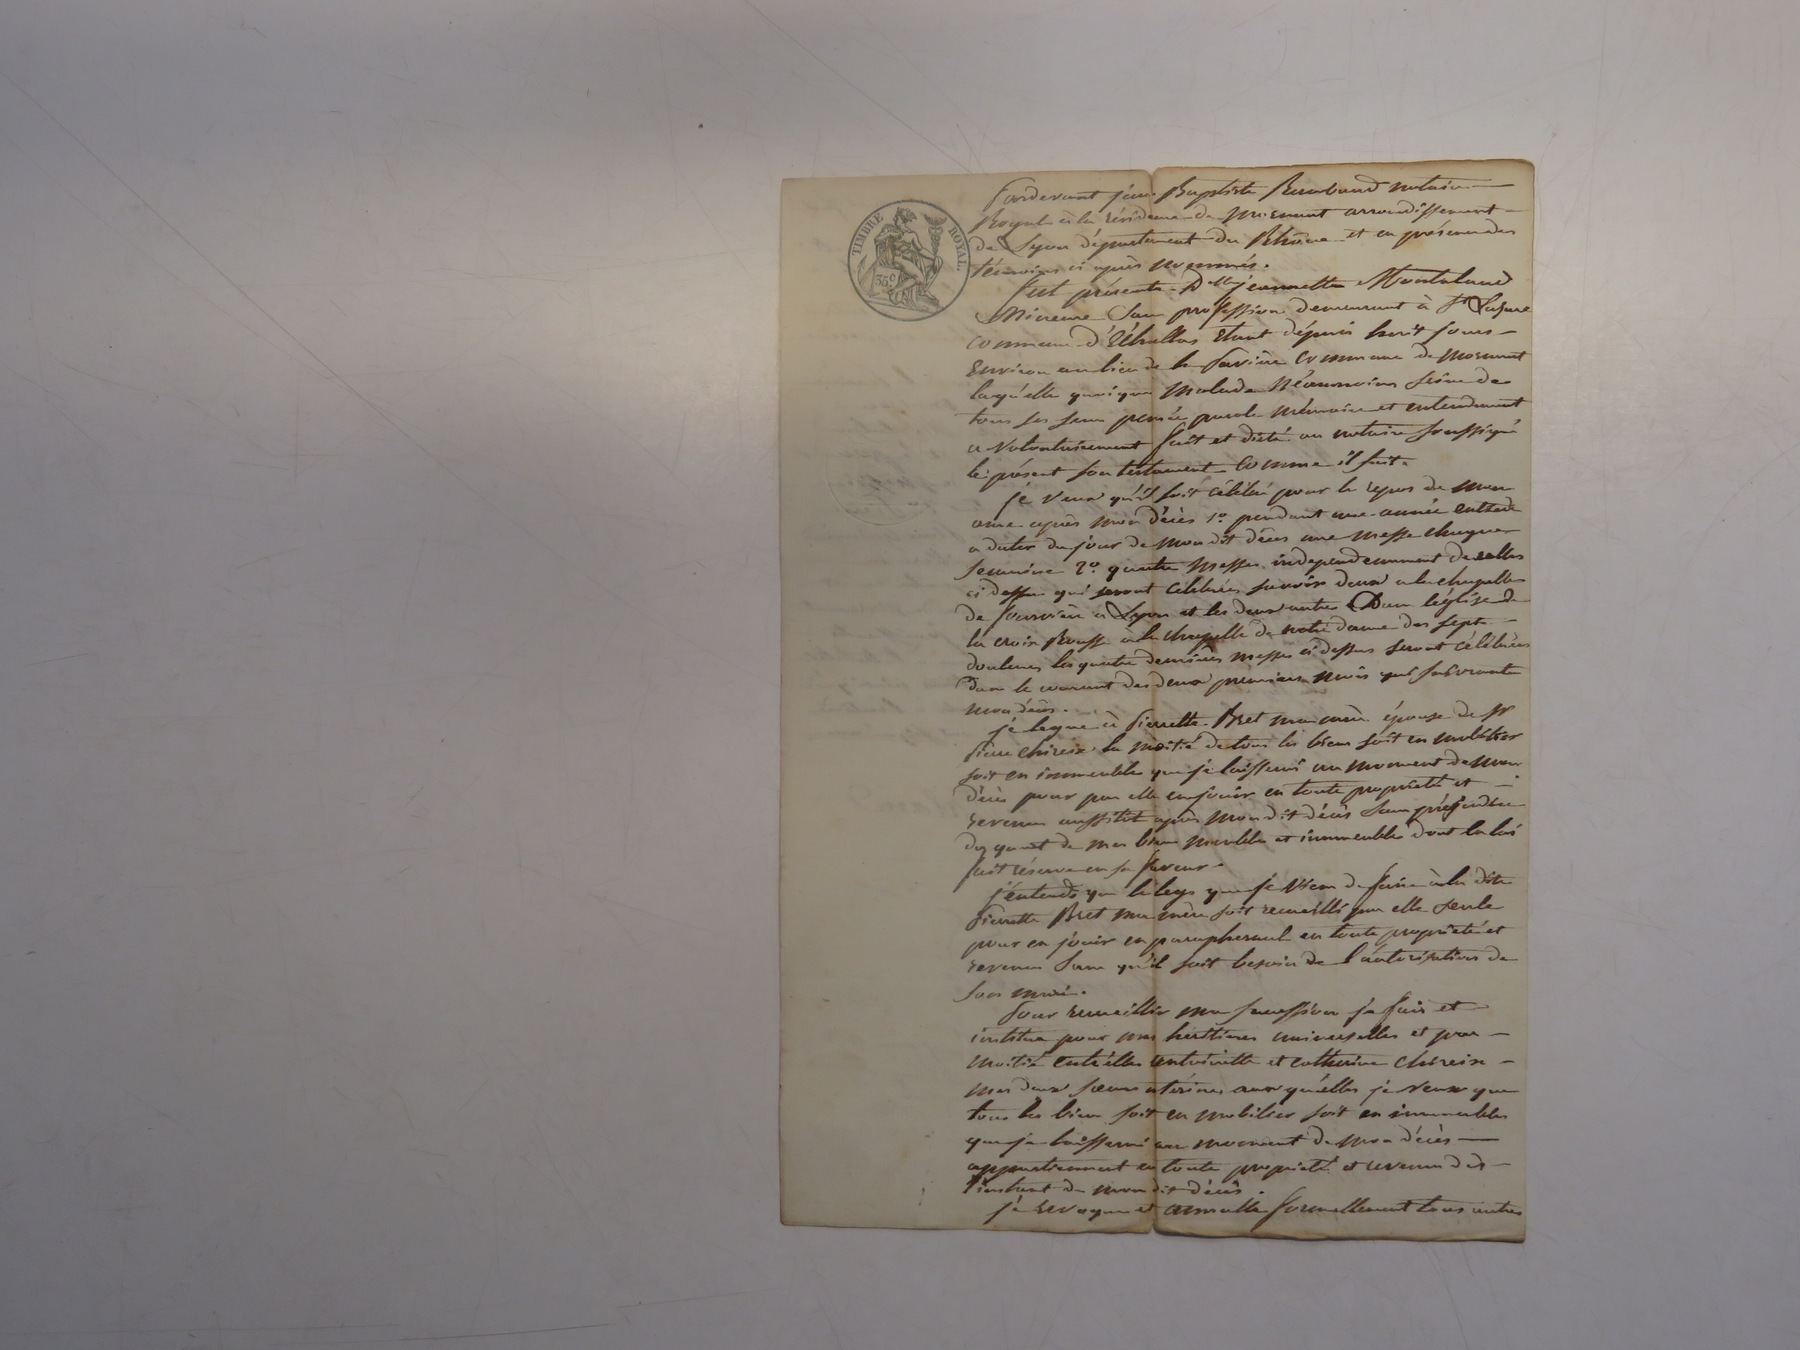 TIMBRE ROYAL.
35c
Pardevant jean Baptiste notaire
Royal à la résidence de Mornant arrondissement
de Lyon département du Rhône et en présence des
témoins ci après nommés.
fut présente Dlle jeannette
Mineure sans profession demeurant à St
commune d'Echallas étant dépuis huit jours
Environ au lieu de la commune de mornant
laqu'elle quoique Malade Néanmoins saine de
tous ses sens pensée parole mémoire et entendement
a Volontairement fait et dicté au notaire soussigné
le présent son testament comme il suit.
je veux qu'il soit célébré pour le repos de mon
ame après mon décès 1o. pendant une année entière
a dater du jour de mon dit décès une messe chaque
semaine 2o. quatre messes independemment de celles
ci dessus qui seront célébrées savoir deux a la chapelle
de fourvière à Lyon et les deux autres Dans l'église de
la croix Rousse a la chapelle de notre dame des sept
douleurs les quatre dernières messes ci dessus seront célébrées
dans le courant des deux premiers mois qui suivront
mon décès.
je legue à pierrette Bret ma mère épouse de Sr
pierre chireix la moitié de tous les biens soit en mobilier
soit en immeubles que je laisserai au moment de mon
décès pour par elle en jouir en toute propriété et
revenus aussitôt après mon dit décès sans préjudice
du quart de mes biens meubles et immeubles dont la loi
fait réserve en sa faveur.
j'entends que le legs que je viens de faire à la dite
pierrette Bret ma mère soit recueilli par elle seule
pour en jouir en paraphernal en toute propriété et
revenus sans qu'il soit besoin de l'autorisation de
son mari.
pour recueillir ma succession je fais et
institue pour mes héritières universelles et par
moitié entr'elles antoinette et catherine chireix
mes deux sœurs utérines auxqu'elles je veux que
tous les biens soit en mobilier soit en immeubles
que je laisserai au moment de mon décès
appartiennent en toute propriété et revenus dès
l'instant de mon dit décès.
je revoque et annulle formellement tous autres